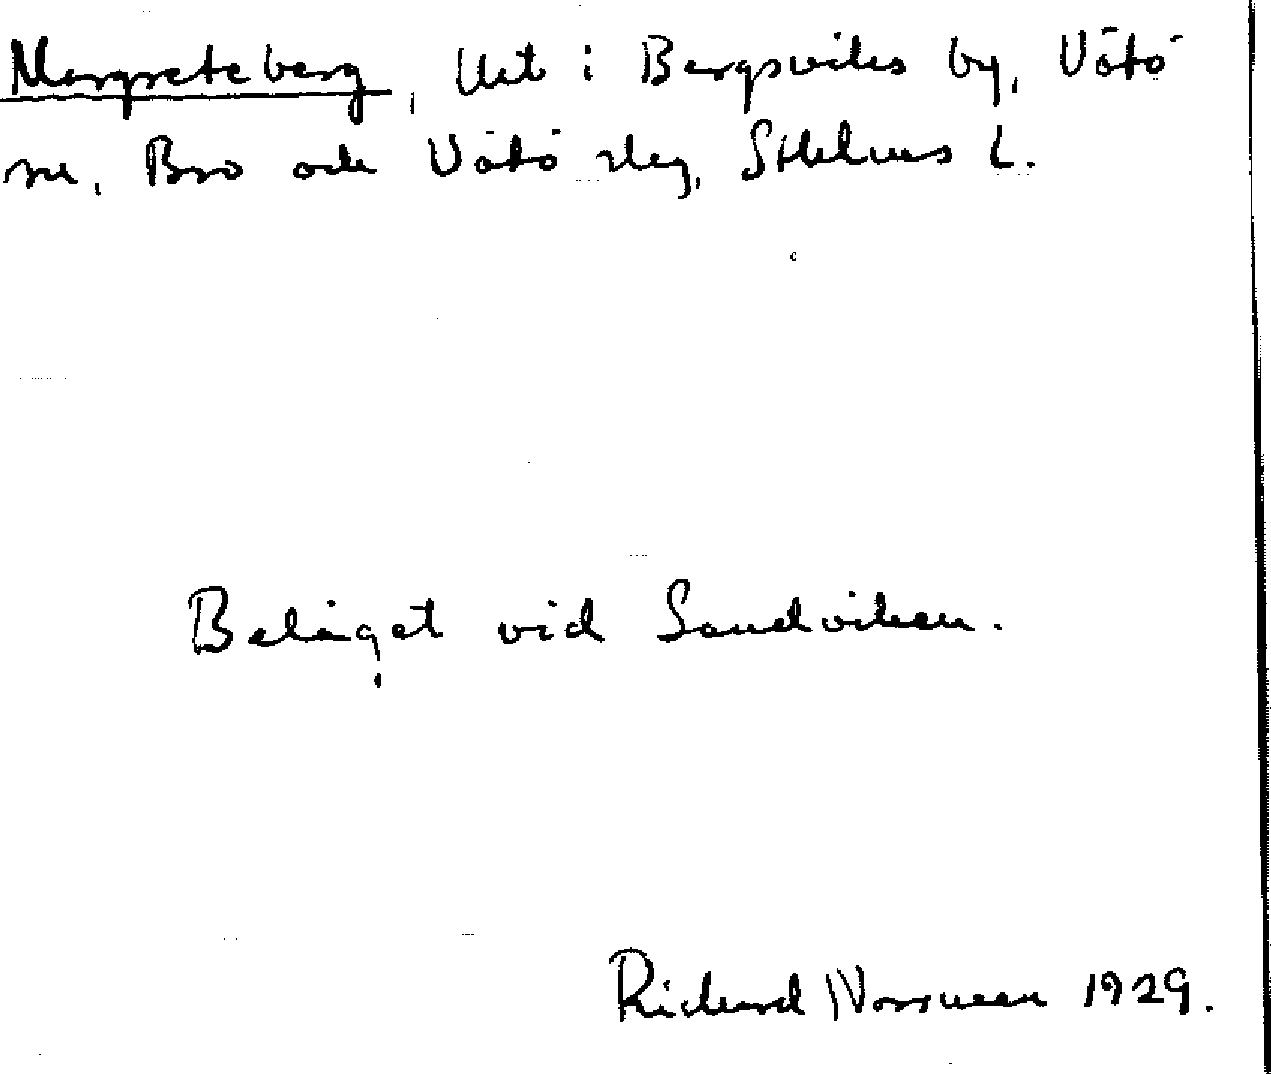 Margreteberg, lht i Bergsviks by, Vätö
sn, Bro och Vätö slg, Sthlms L.
Beläget vid Sandviken.
Richard Norrman 1929.